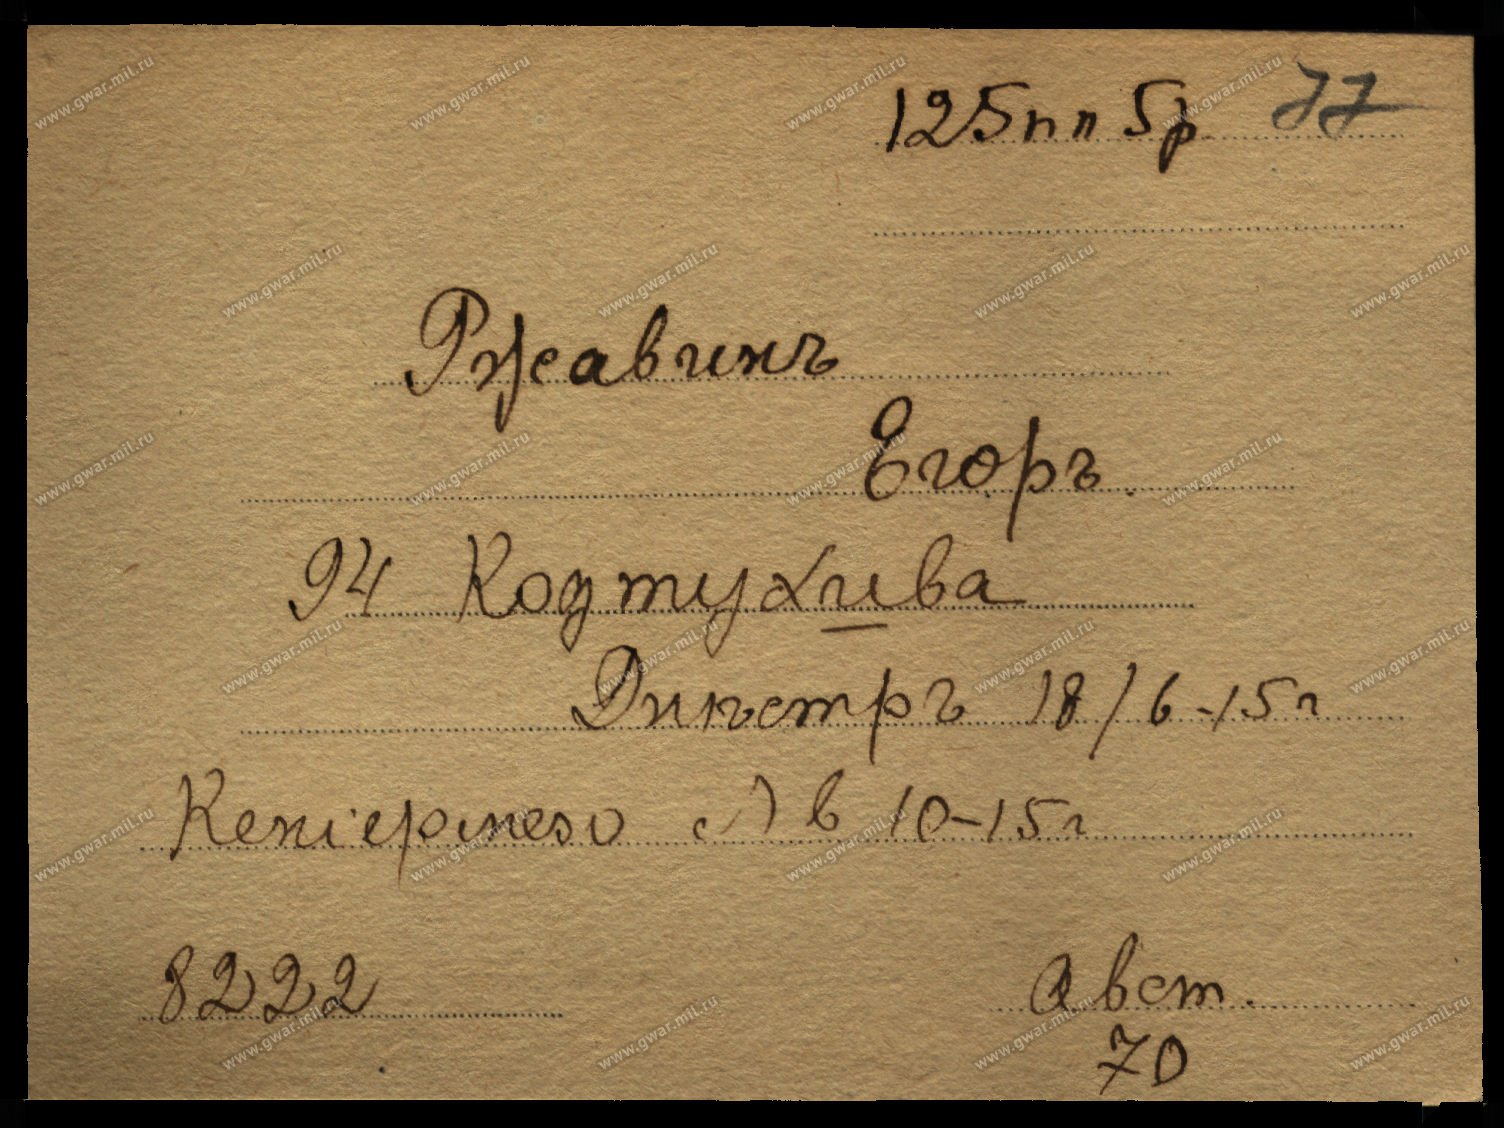 125 пп 5р 77
Ржавинъ
Егоръ.
94 Кодтухива
Днѣстръ 18/6-15г
Кеніермезо в 10-15г
8222
Авст.
70